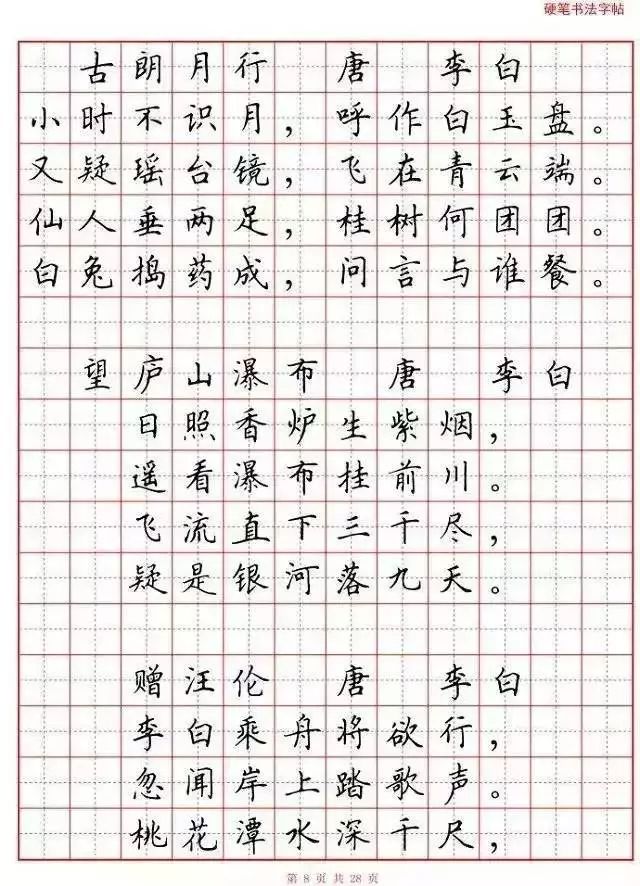 硬笔书法字帖
古朗月行 唐 李白
小时不识月，呼作白玉盘。
又疑瑶台镜，飞在青云端。
仙人垂两足，桂树何团团。
白兔捣药成，问言与谁餐。
望庐山瀑布 唐 李白
日照香炉生紫烟，
遥看瀑布挂前川。
飞流直下三千尽，
疑是银河落九天。
赠汪伦 唐 李白
李白乘舟将欲行，
忽闻岸上踏歌声。
桃花潭水深千尺，
第 8 页 共 28 页